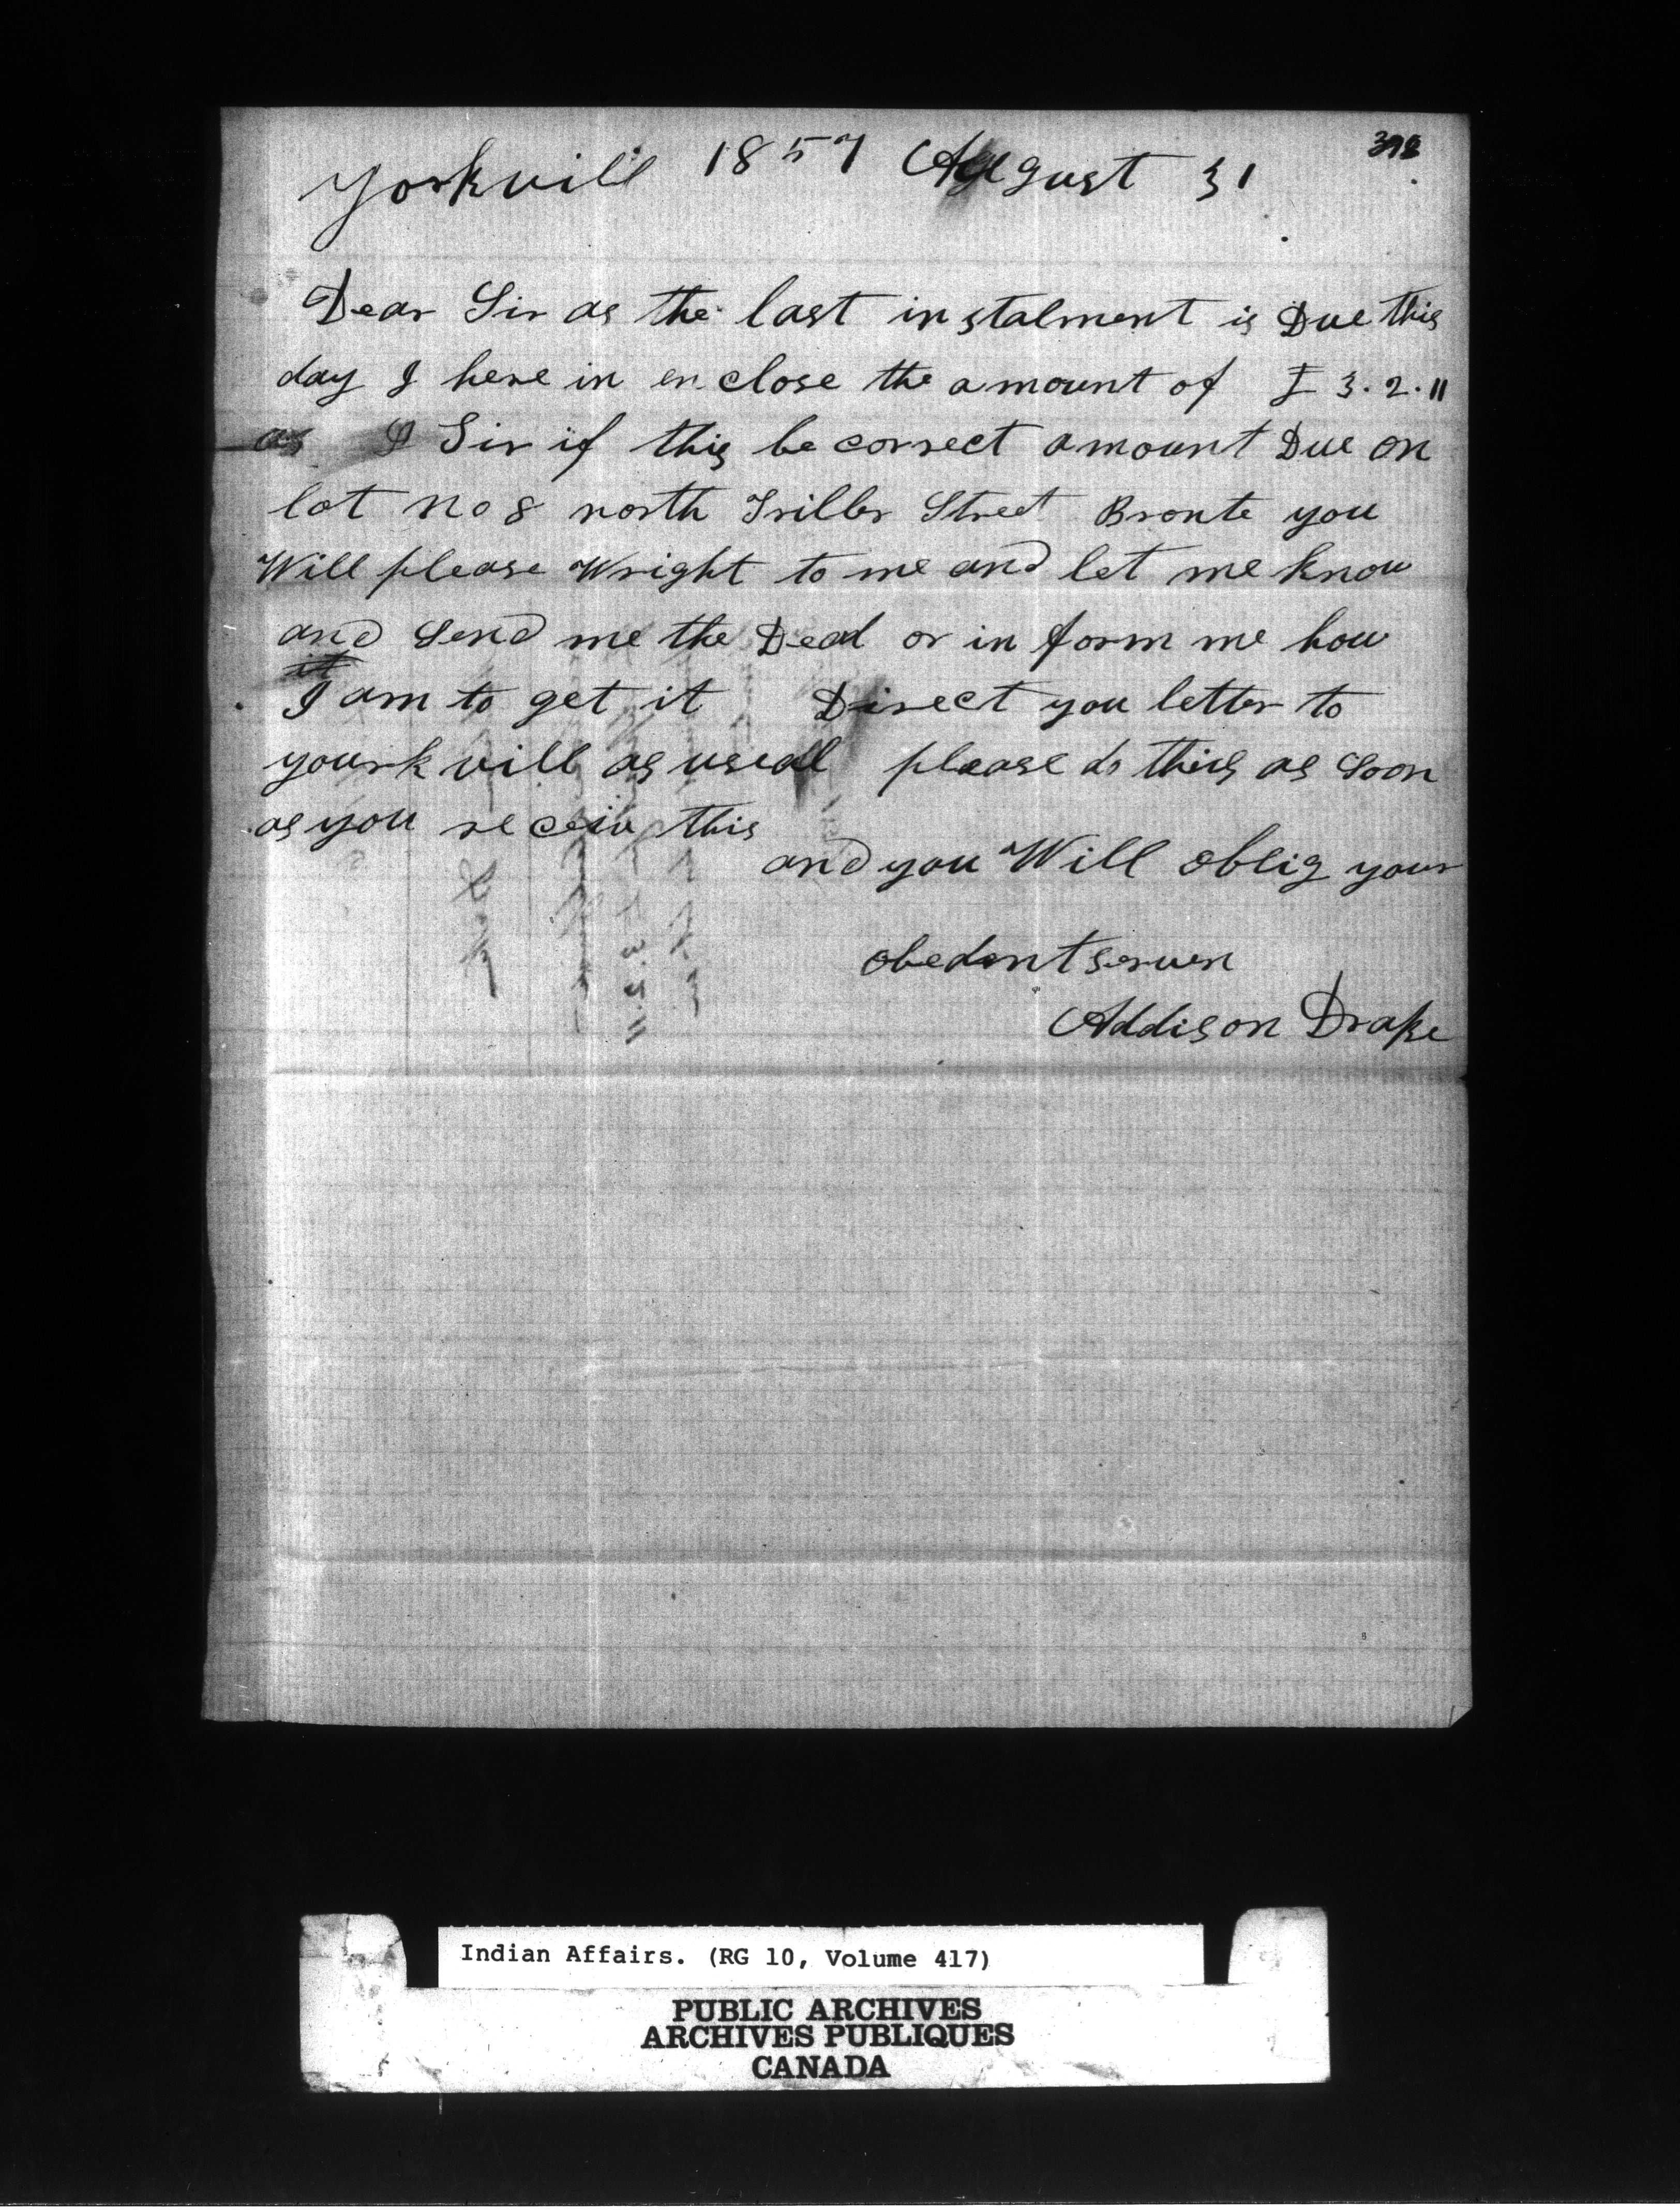 398
yorkvill 1857 August 31
Dear Sir as the last in stalment is Due this
day I here in en close the amount of £ 3.2.11
as I Sir if this be correct amount Due on
lot no 8 north Triller Street Bronte you
Will please Wright to me and let me know
and Send me the Deed or in form me how
it
I am to get it Direct you letter to
yourkvill as useal please do this as soon
as you receiv this
and you Will oblig your
obedent serven
Addison Drake
Indian Affairs. (RG 10, Volume 417)
PUBLIC ARCHIVES
ARCHIVES PUBLIQUES
CANADA